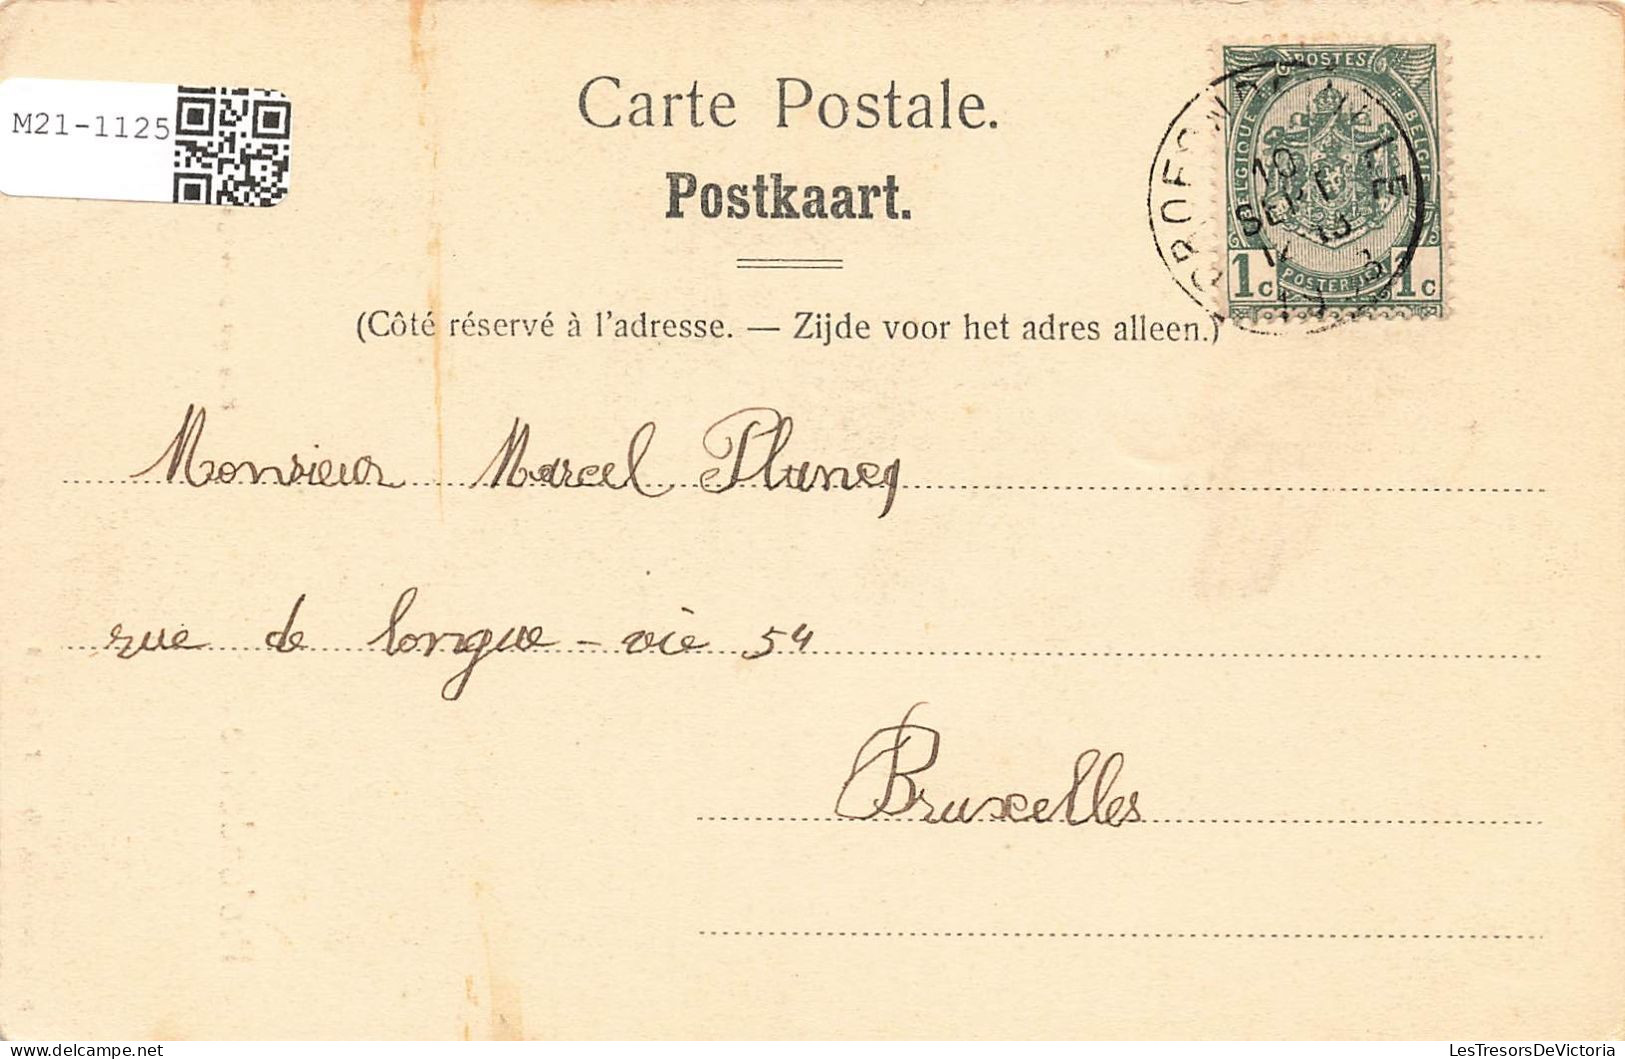 M21-1125
Carte Postale.
Postkaart.
(Côté réservé à l'adresse. — Zijde voor het adres alleen.)
POSTES
BELGIQUE
BELGIE
10
SEPT
1c
POSTERIJEN
1c
Monsieur Marcel Plancq
rue de longue-vie 54
Bruxelles
LesTresorsDeVictoria